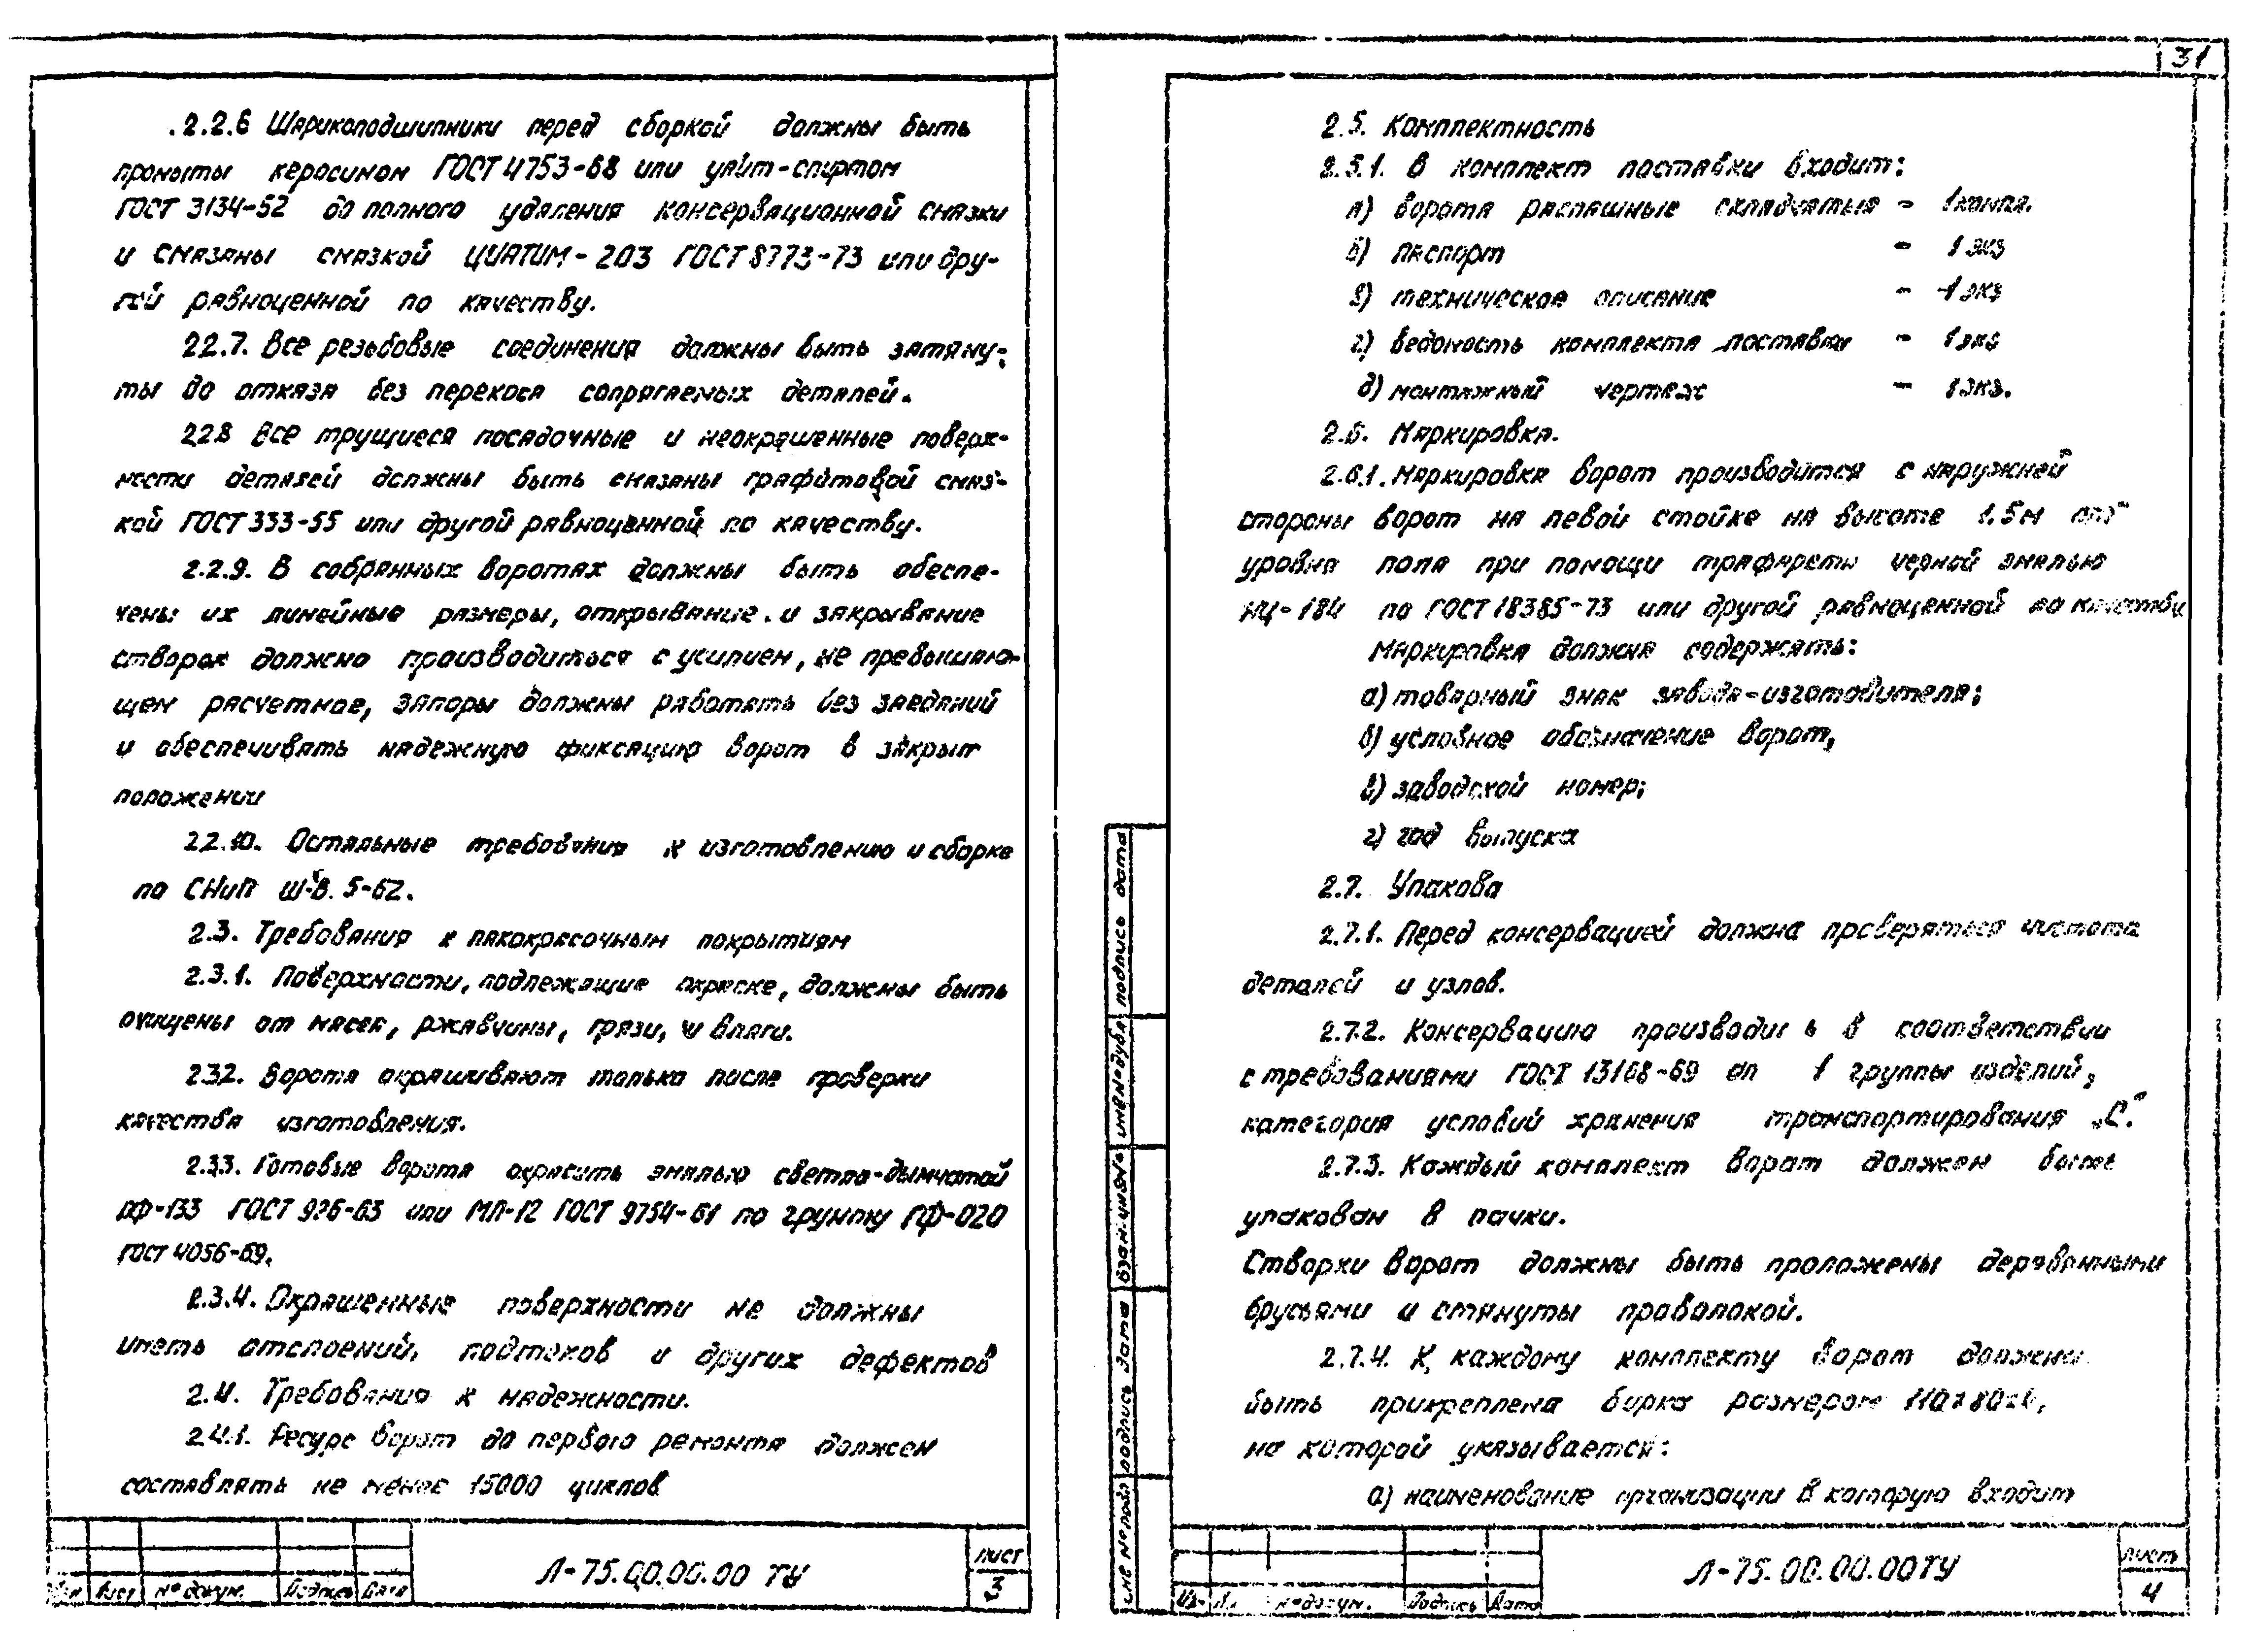 .2.2.6 Шарикоподшипники перед сборкой должны быть
промыты керосином ГОСТ 4753-68 или уайт-спиртом
ГОСТ 3134-52 до полного удаления консервационной смазки
и смазаны смазкой ЦИАТИМ-203 ГОСТ 8773-73 или дру-
гой равноценной по качеству.
2.2.7. Все резьбовые соединения должны быть затяну-
ты до отказа без перекоса сопрягаемых деталей.
2.2.8 Все трущиеся посадочные и неокрашенные поверх-
ности деталей должны быть смазаны графитовой смаз-
кой ГОСТ 333-55 или другой равноценной по качеству.
2.2.9. В собранных воротах должны быть обеспе-
чены их линейные размеры, открывание. и закрывание
створок должно производиться с усилием, не превышаю-
щем расчетное, запоры должны работать без заеданий
и обеспечивать надежную фиксацию ворот в закрыт
положении
2.2.10. Остальные требования к изготовлению и сборке
по СНиП Ш-В. 5-62.
2.3. Требования к лакокрасочным покрытиям
2.3.1. Поверхности, подлежащие окраске, должны быть
очищены от масел, ржавчины, грязи, и влаги.
2.3.2. Ворота окрашивают только после проверки
качества изготовления.
2.3.3. Готовые ворота окрасить эмалью светло-дымчатой
ПФ-133 ГОСТ 926-63 или МЛ-12 ГОСТ 9754-61 по грунту ПФ-020
ГОСТ 4056-69.
2.3.4. Окрашенные поверхности не должны
иметь отслоений, подтеков и других дефектов
2.4. Требования к надежности.
2.4.1. Ресурс ворот до первого ремонта должен
составлять не менее 15000 циклов
Изм Лист № докум. Подпись Дата
Л-75.00.00.00 ТУ
лист
3
31
2.5. Комплектность
2.5.1. В комплект поставки входит:
а) ворота распашные складчатые - 1 компл.
б) паспорт - 1 экз
в) техническое описание - 1 экз
г) ведомость комплекта поставки - 1 экз
д) монтажный чертеж - 1 экз.
2.6. Маркировка.
2.6.1. Маркировка ворот производится с наружней
стороны ворот на левой стойке на высоте 1.5м от
уровня пола при помощи трафареты черной эмалью
НЦ-184 по ГОСТ 18385-73 или другой равноценной по качеству
Маркировка должна содержать:
а) товарный знак завода-изготовителя;
б) условное обозначение ворот,
в) заводской номер;
г) год выпуска
2.7. Упакова
2.7.1. Перед консервацией должна проверяться чистота
деталей и узлов.
2.7.2. Консервацию производить в соответствии
с требованиями ГОСТ 13168-69 1 группы изделий,
категория условий хранения транспортирования „С".
2.7.3. Каждый комплект ворот должен быть
упакован в пачки.
Створки ворот должны быть проложены деревянными
брусьями и стянуты проволокой.
2.7.4. К каждому комплекту ворот должна
быть прикреплена бирка размером
на которой указывается:
а) наименование организации в которую входит
инв № подл подпись дата взам.инв№ инв№дубл подпись дата
Из- Ли №докум. Подпись Дата
Л-75.00.00.00ТУ
лист
4